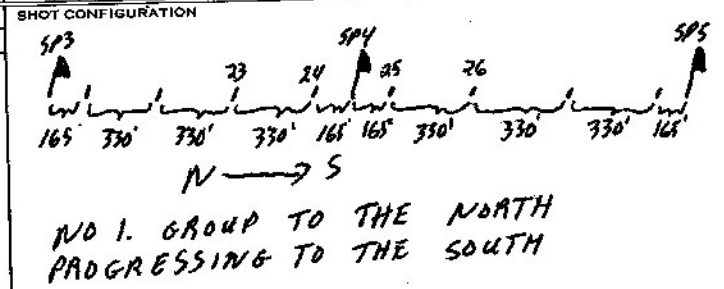 SHOT CONFIGURATION
SP3 SP4 SP5
23 24 25 26
165' 330' 330' 330' 165' 165' 330' 330' 330' 165'
N → S
NO 1. GROUP TO THE NORTH
PROGRESSING TO THE SOUTH